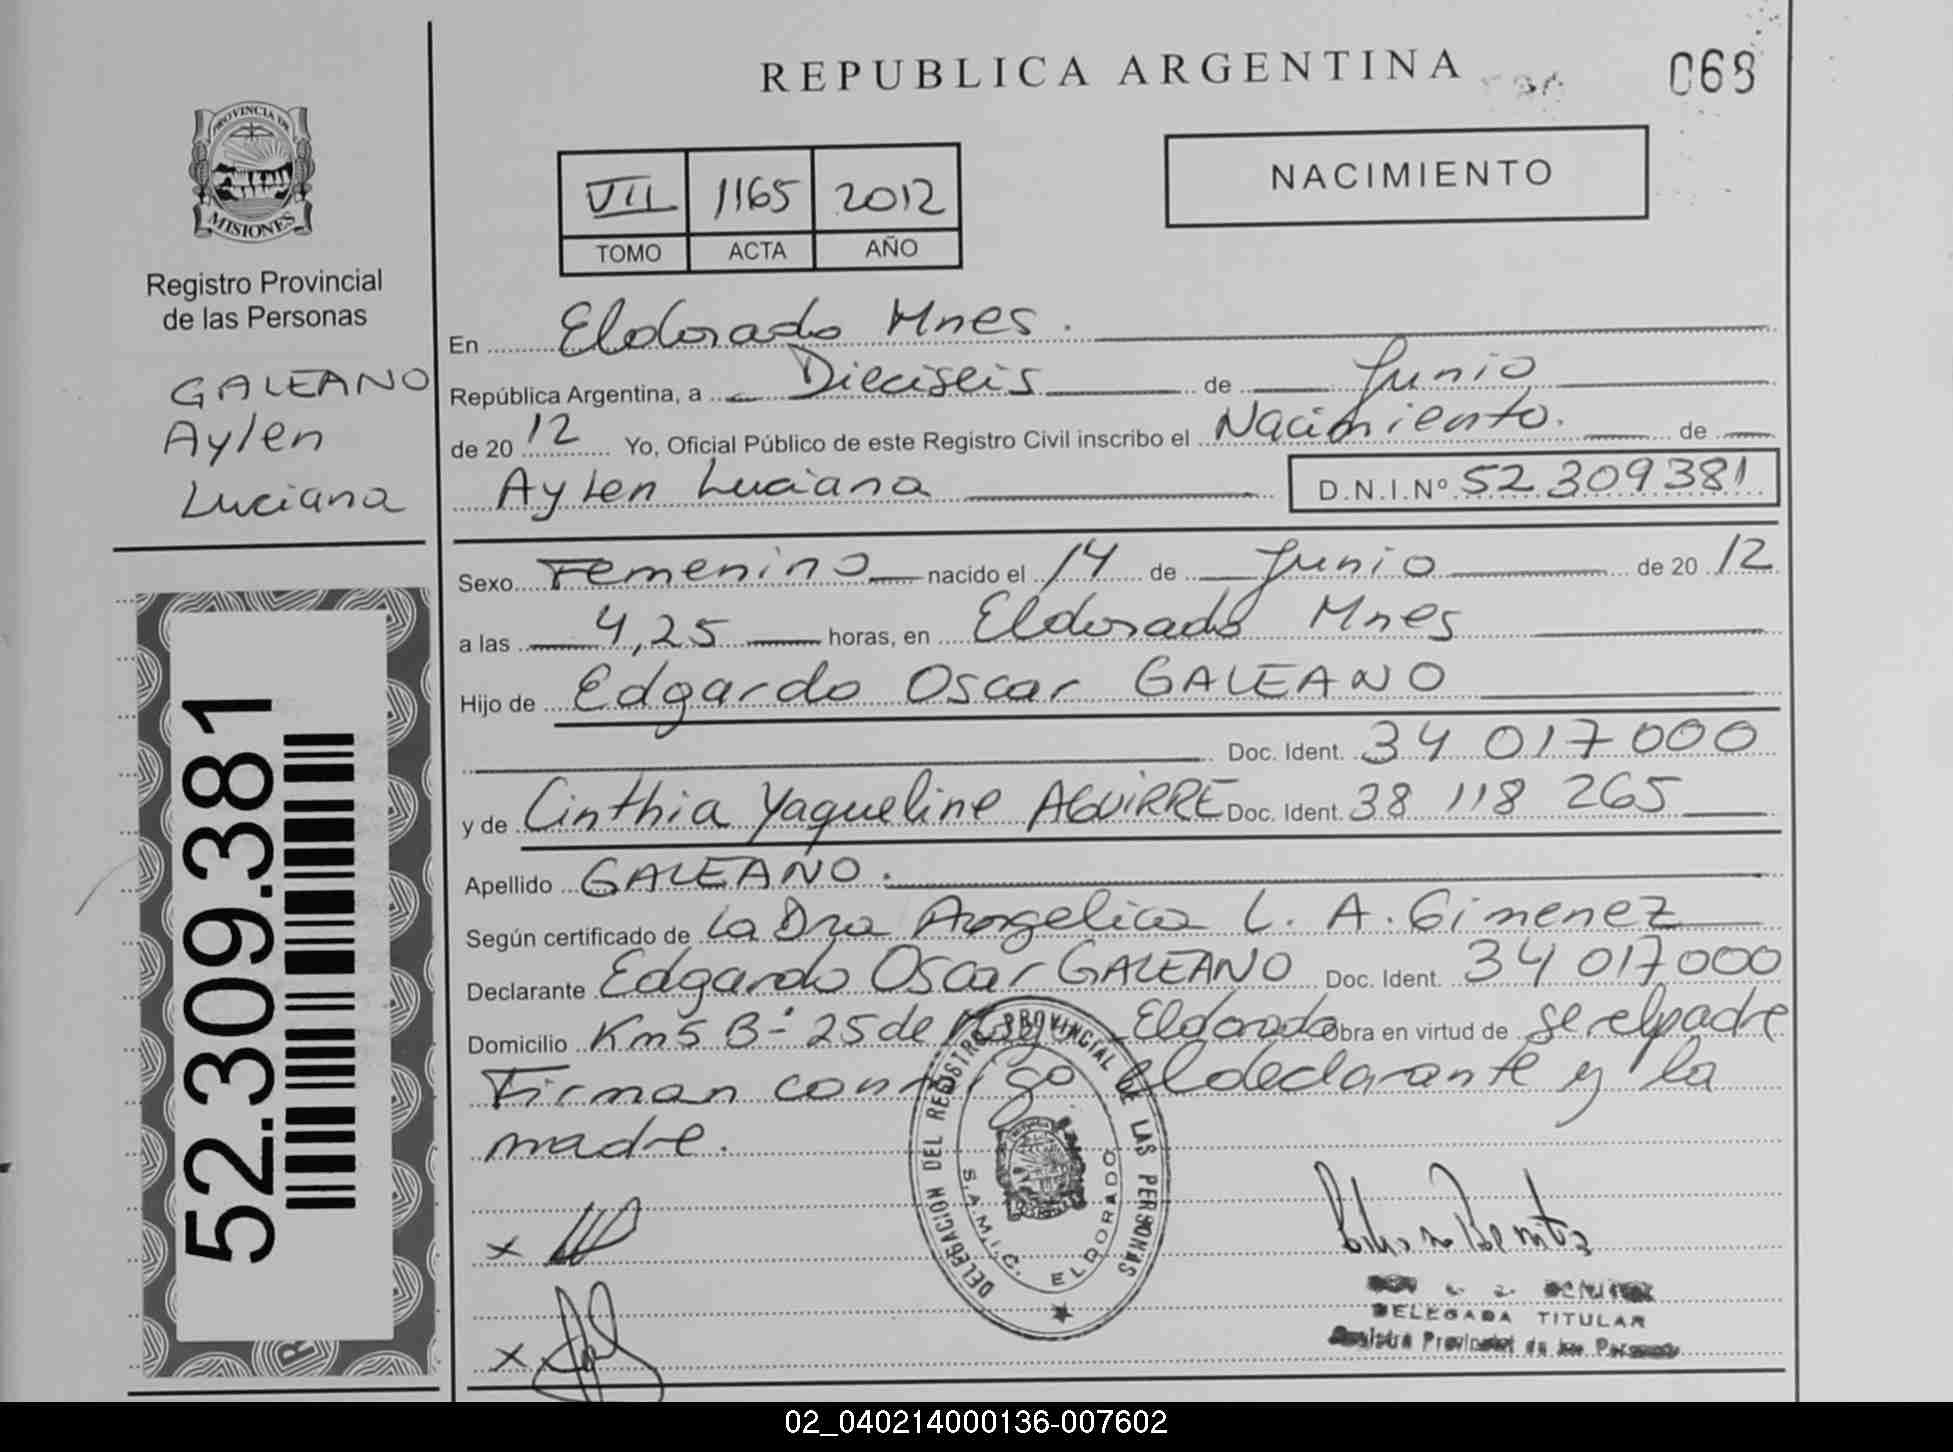 REPUBLICA ARGENTINA
068
PROVINCIA DE
MISIONES
Registro Provincial
de las Personas
GALEANO
Aylen
Luciana
52.309.381
VII 1165 2012
TOMO ACTA AÑO
NACIMIENTO
En Eldorado Mnes.
República Argentina, a Dieciseis de Junio
de 20 12 Yo, Oficial Público de este Registro Civil inscribo el Nacimiento. de
Aylen Luciana D.N.I.Nº 52 309 381
Sexo Femenino nacido el 14 de Junio de 20 12
a las 4,25 horas, en Eldorado Mnes
Hijo de Edgardo Oscar GALEANO
Doc. Ident. 34 017 000
y de Cinthia Yaqueline AGUIRRE Doc. Ident. 38 118 265
Apellido GALEANO.
Según certificado de La Dra Angelica L. A. Gimenez
Declarante Edgardo Oscar GALEANO Doc. Ident. 34 017 000
Domicilio Km 5 Bº 25 de Mayo Eldorado Obra en virtud de ser el padre
Firman conmigo el declarante y la
madre.
DELEGACION DEL REGISTRO PROVINCIAL DE LAS PERSONAS
S.A.M.I.C. ELDORADO
x
x
Benitez
DELEGADA TITULAR
Registro Provincial de las Personas
02_040214000136-007602